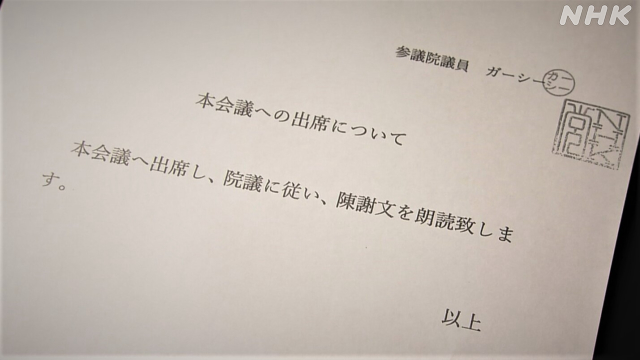 NHK
参議院議員 ガーシー
ガーシー
NHK党
本会議への出席について
本会議へ出席し、院議に従い、陳謝文を朗読致しま
す。
以上